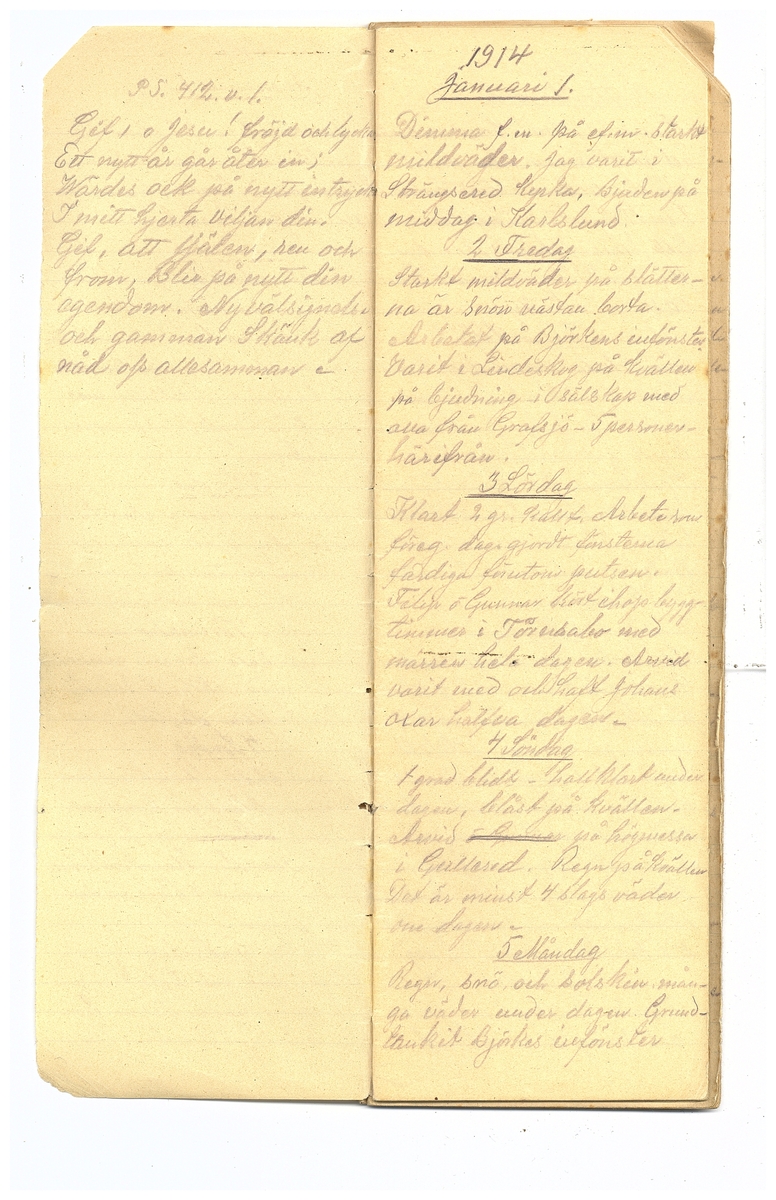 PS. 412. v. 1.
Gif, o Jesu! fröjd och lycka
Ett nytt år går åter in;
Wärdes ock på nytt intrycka
I mitt hjerta viljan din.
Gif, att själen, ren och
from, Blir på nytt din
egendom. Ny välsignelse
och gamman Skänk af
nåd oss allesamman.
1914
Januari 1.
Dimma f.m. på ef.m. starkt
mildväder. Jag varit i
Strängsered. bjuden på
middag i Karlslund.
2 Fredag
Starkt mildväder på slätter-
na är snön nästan borta.
Arbetat på Björkens infönster
Varit i Lindeskog på kvällen
på bjudning i sälskap med
alla från Grafsjö - 5 personer
härifrån.
3 Lördag
Klart 2 gr. kallt. Arbete som
föreg. dag. gjordt fönsterna
färdiga förutom putsen.
Filip o Gunnar kört ihop bygg-
timmer i Törersabo med
märren hela dagen. Arvid
varit med och haft Johans
oxar hälfva dagen -
4 Söndag
1 grad blidt - halfklart under
dagen, blåst på kvällen.
Arvid o Gunnar på högmessa
i Gullered. Regn på kvällen
Det är minst 4 slags väder
om dagen -
5 Måndag
Regn, snö, och solsken mån-
ga väder under dagen. Grund-
Björkes infönster